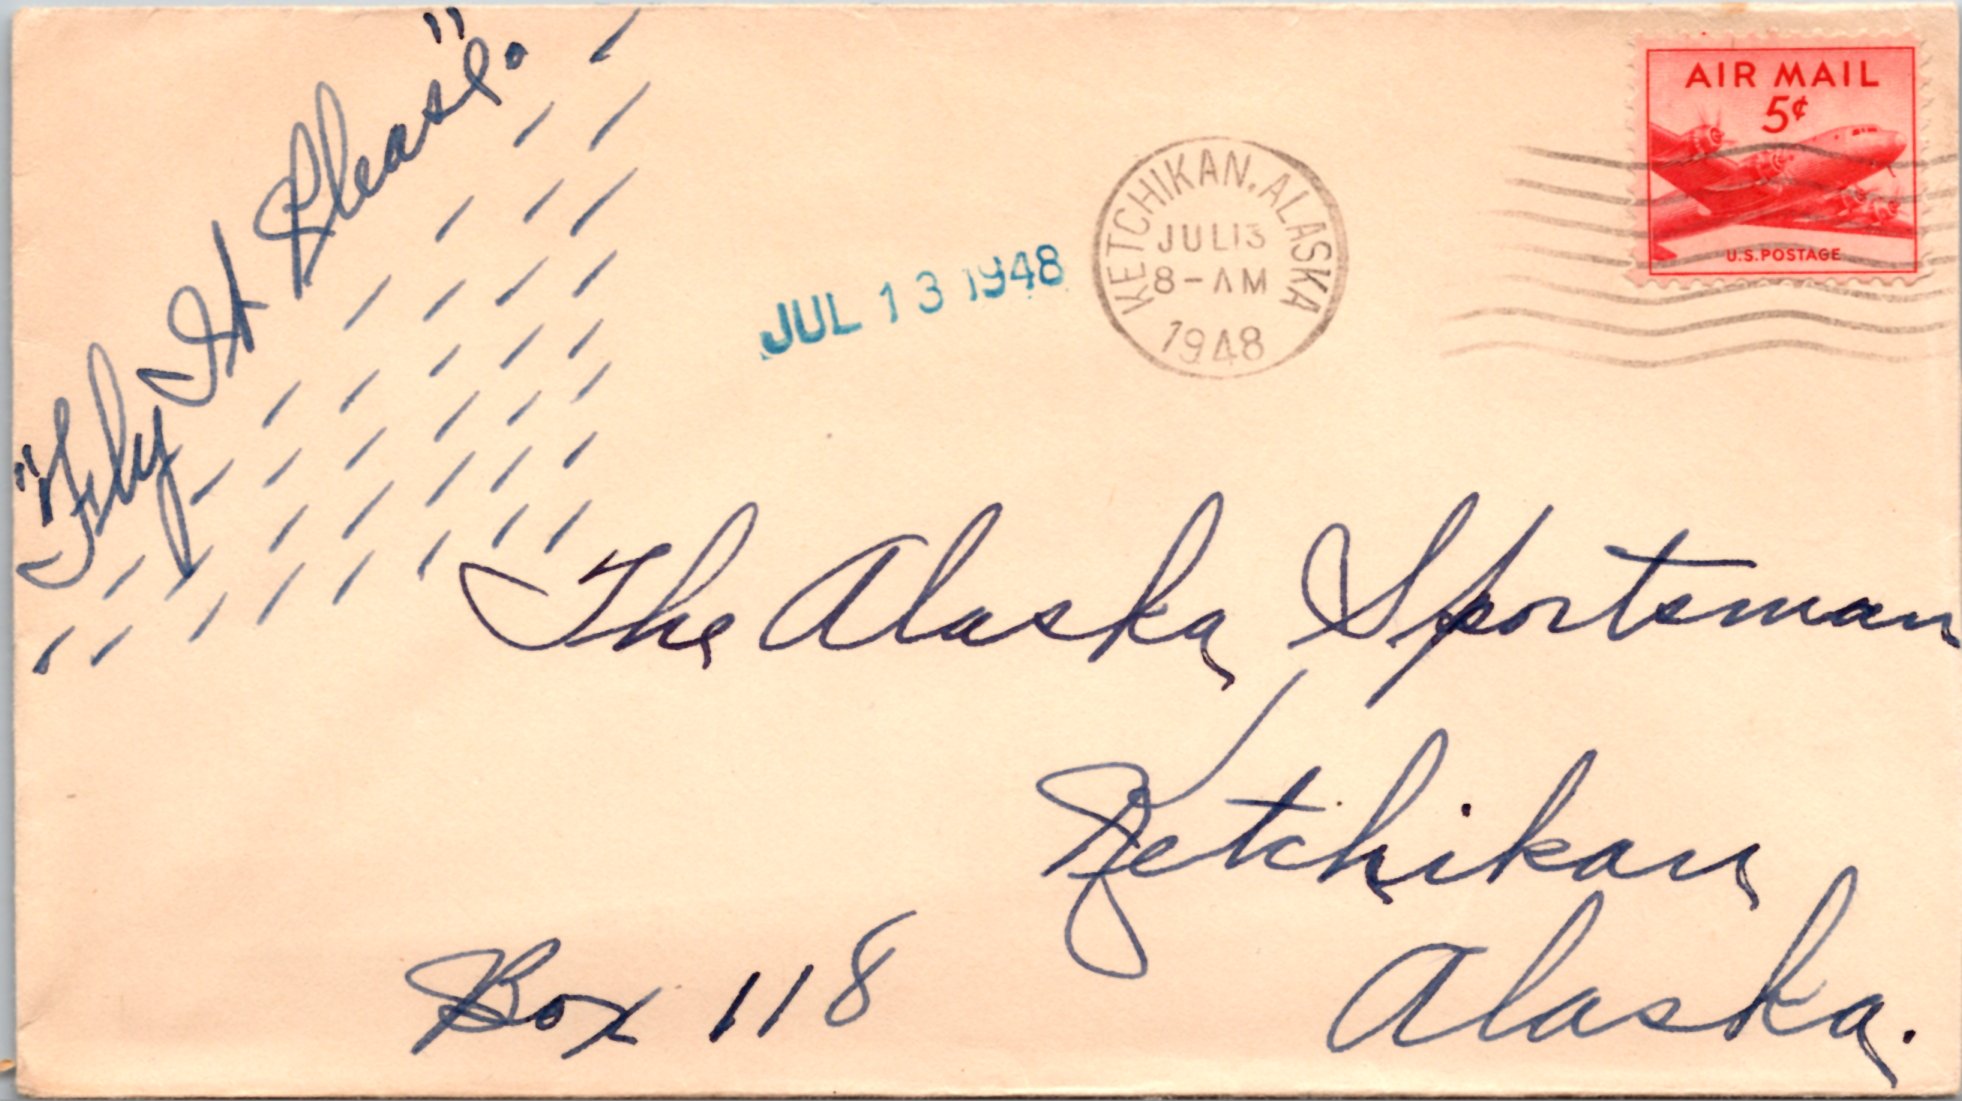 "Fly It Please".
AIR MAIL
5¢
U.S. POSTAGE
JUL 13 1948
KETCHIKAN, ALASKA
JUL 13
8-AM
1948
The Alaska Sportsman
Ketchikan
Box 118
Alaska.